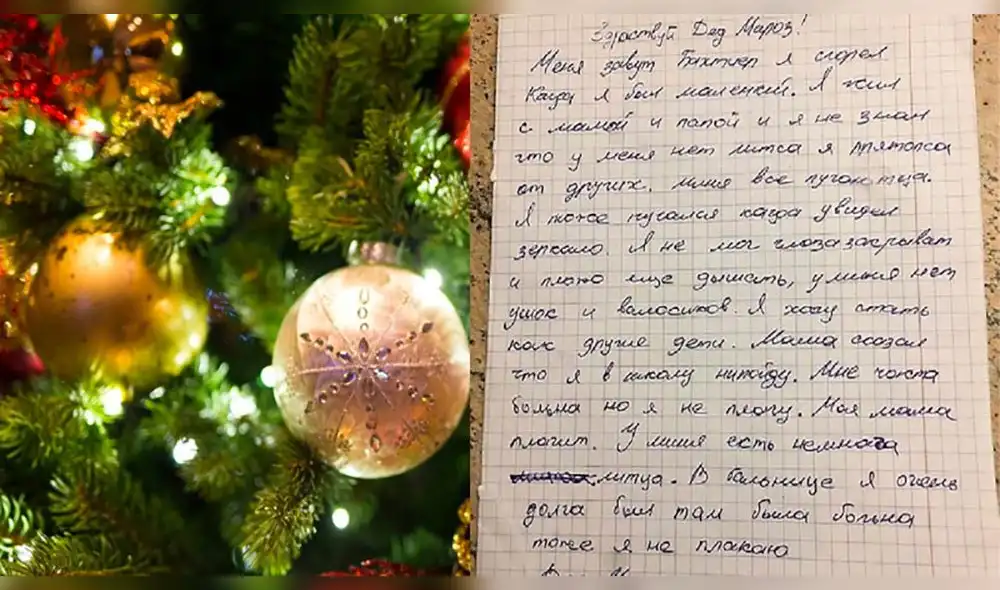 Здраствуй Дед Мароз!
Меня завут Бахтиер я сгорел
Кагда я был маленкий. Я жил
с мамой и папой и я не знал
что у меня нет литса я прятолса
от других. миня все пугаютца.
Я тоже пугался кагда увидел
зеркало. Я не мог глоза закрыват
и плохо ище дышать, у миня нет
ушок и воласиков. Я хочу стать
как другие дети. Мама сказал
что я в школу нипойду. Мне часта
больна но я не плачу. Моя мама
плачит. У миня есть немнога
литца. В больнице я очень
долга был там была больна
тоже я не плакаю